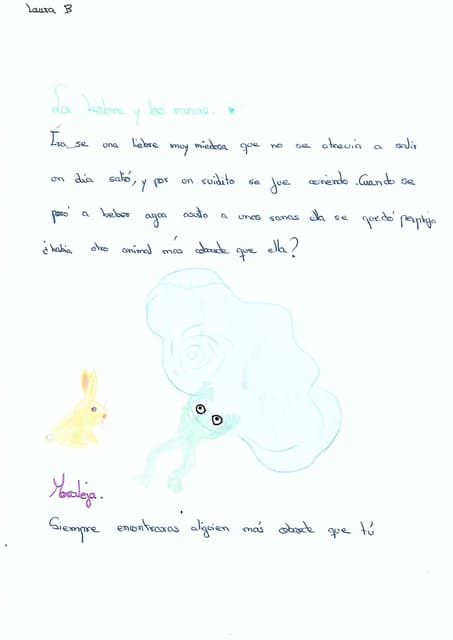 Laura B
La liebre y las ranas.
Era se una liebre muy miedosa que no se atrevia a salir
un día salió, y por un ruidito se fue corriendo. Cuando se
paró a beber agua asusto a unas ranas ella se quedó perplejo
¿había otro animal más cobarde que ella?
Moraleja.
Siempre encontraras alguien más cobarde que tú